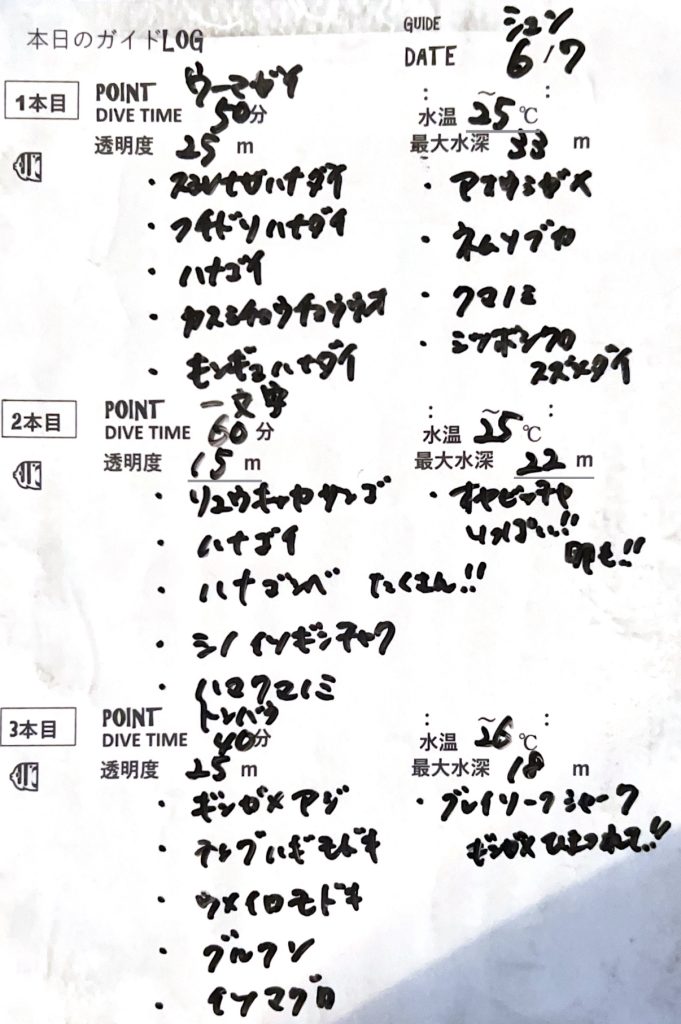 本日のガイドLOG
GUIDE シュン
DATE 6/7
1本目
POINT ウーマガイ
DIVE TIME 50分
水温 ~25℃
透明度 25 m
最大水深 33 m
・スミレナガハナダイ
・フチドリハナダイ
・ハナゴイ
・カスミチョウチョウウオ
・キンギョハナダイ
・アオウミガメ
・ネムリブカ
・クマノミ
・ミツボシクロ
スズメダイ
2本目
POINT 一文字
DIVE TIME 60分
水温 ~25℃
透明度 15 m
最大水深 22 m
・リュウキュウキッカサンゴ
・ハナゴイ
・ハナゴンベ たくさん!!
・シライソギンチャク
・ハマクマノミ
・オヤビッチャ
いっぱい!!
卵も!!
3本目
POINT トンバラ
DIVE TIME 40分
水温 ~26℃
透明度 25 m
最大水深 18 m
・ギンガメアジ
・テングハギモドキ
・ウメイロモドキ
・グルクン
・イソマグロ
・グレイリーフシャーク
ギンガメひきつれて!!